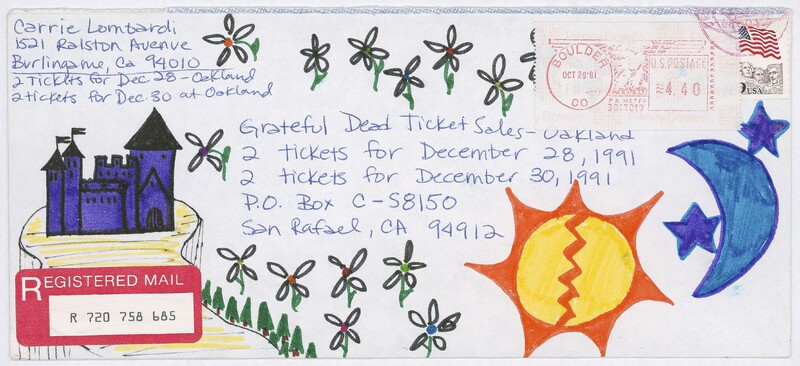 Carrie Lombardi
1521 Ralston Avenue
Burlingame, Ca 94010
2 Tickets for Dec 28 - Oakland
2 tickets for Dec. 30 at Oakland
BOULDER
OCT 29'91
CO
U.S. POSTAGE
4.40
PB METER
USA
Grateful Dead Ticket Sales - Oakland
2 tickets for December 28, 1991
2 tickets for December 30, 1991
P.O. Box C-S8150
San Rafael, CA 94912
REGISTERED MAIL
R 720 758 685